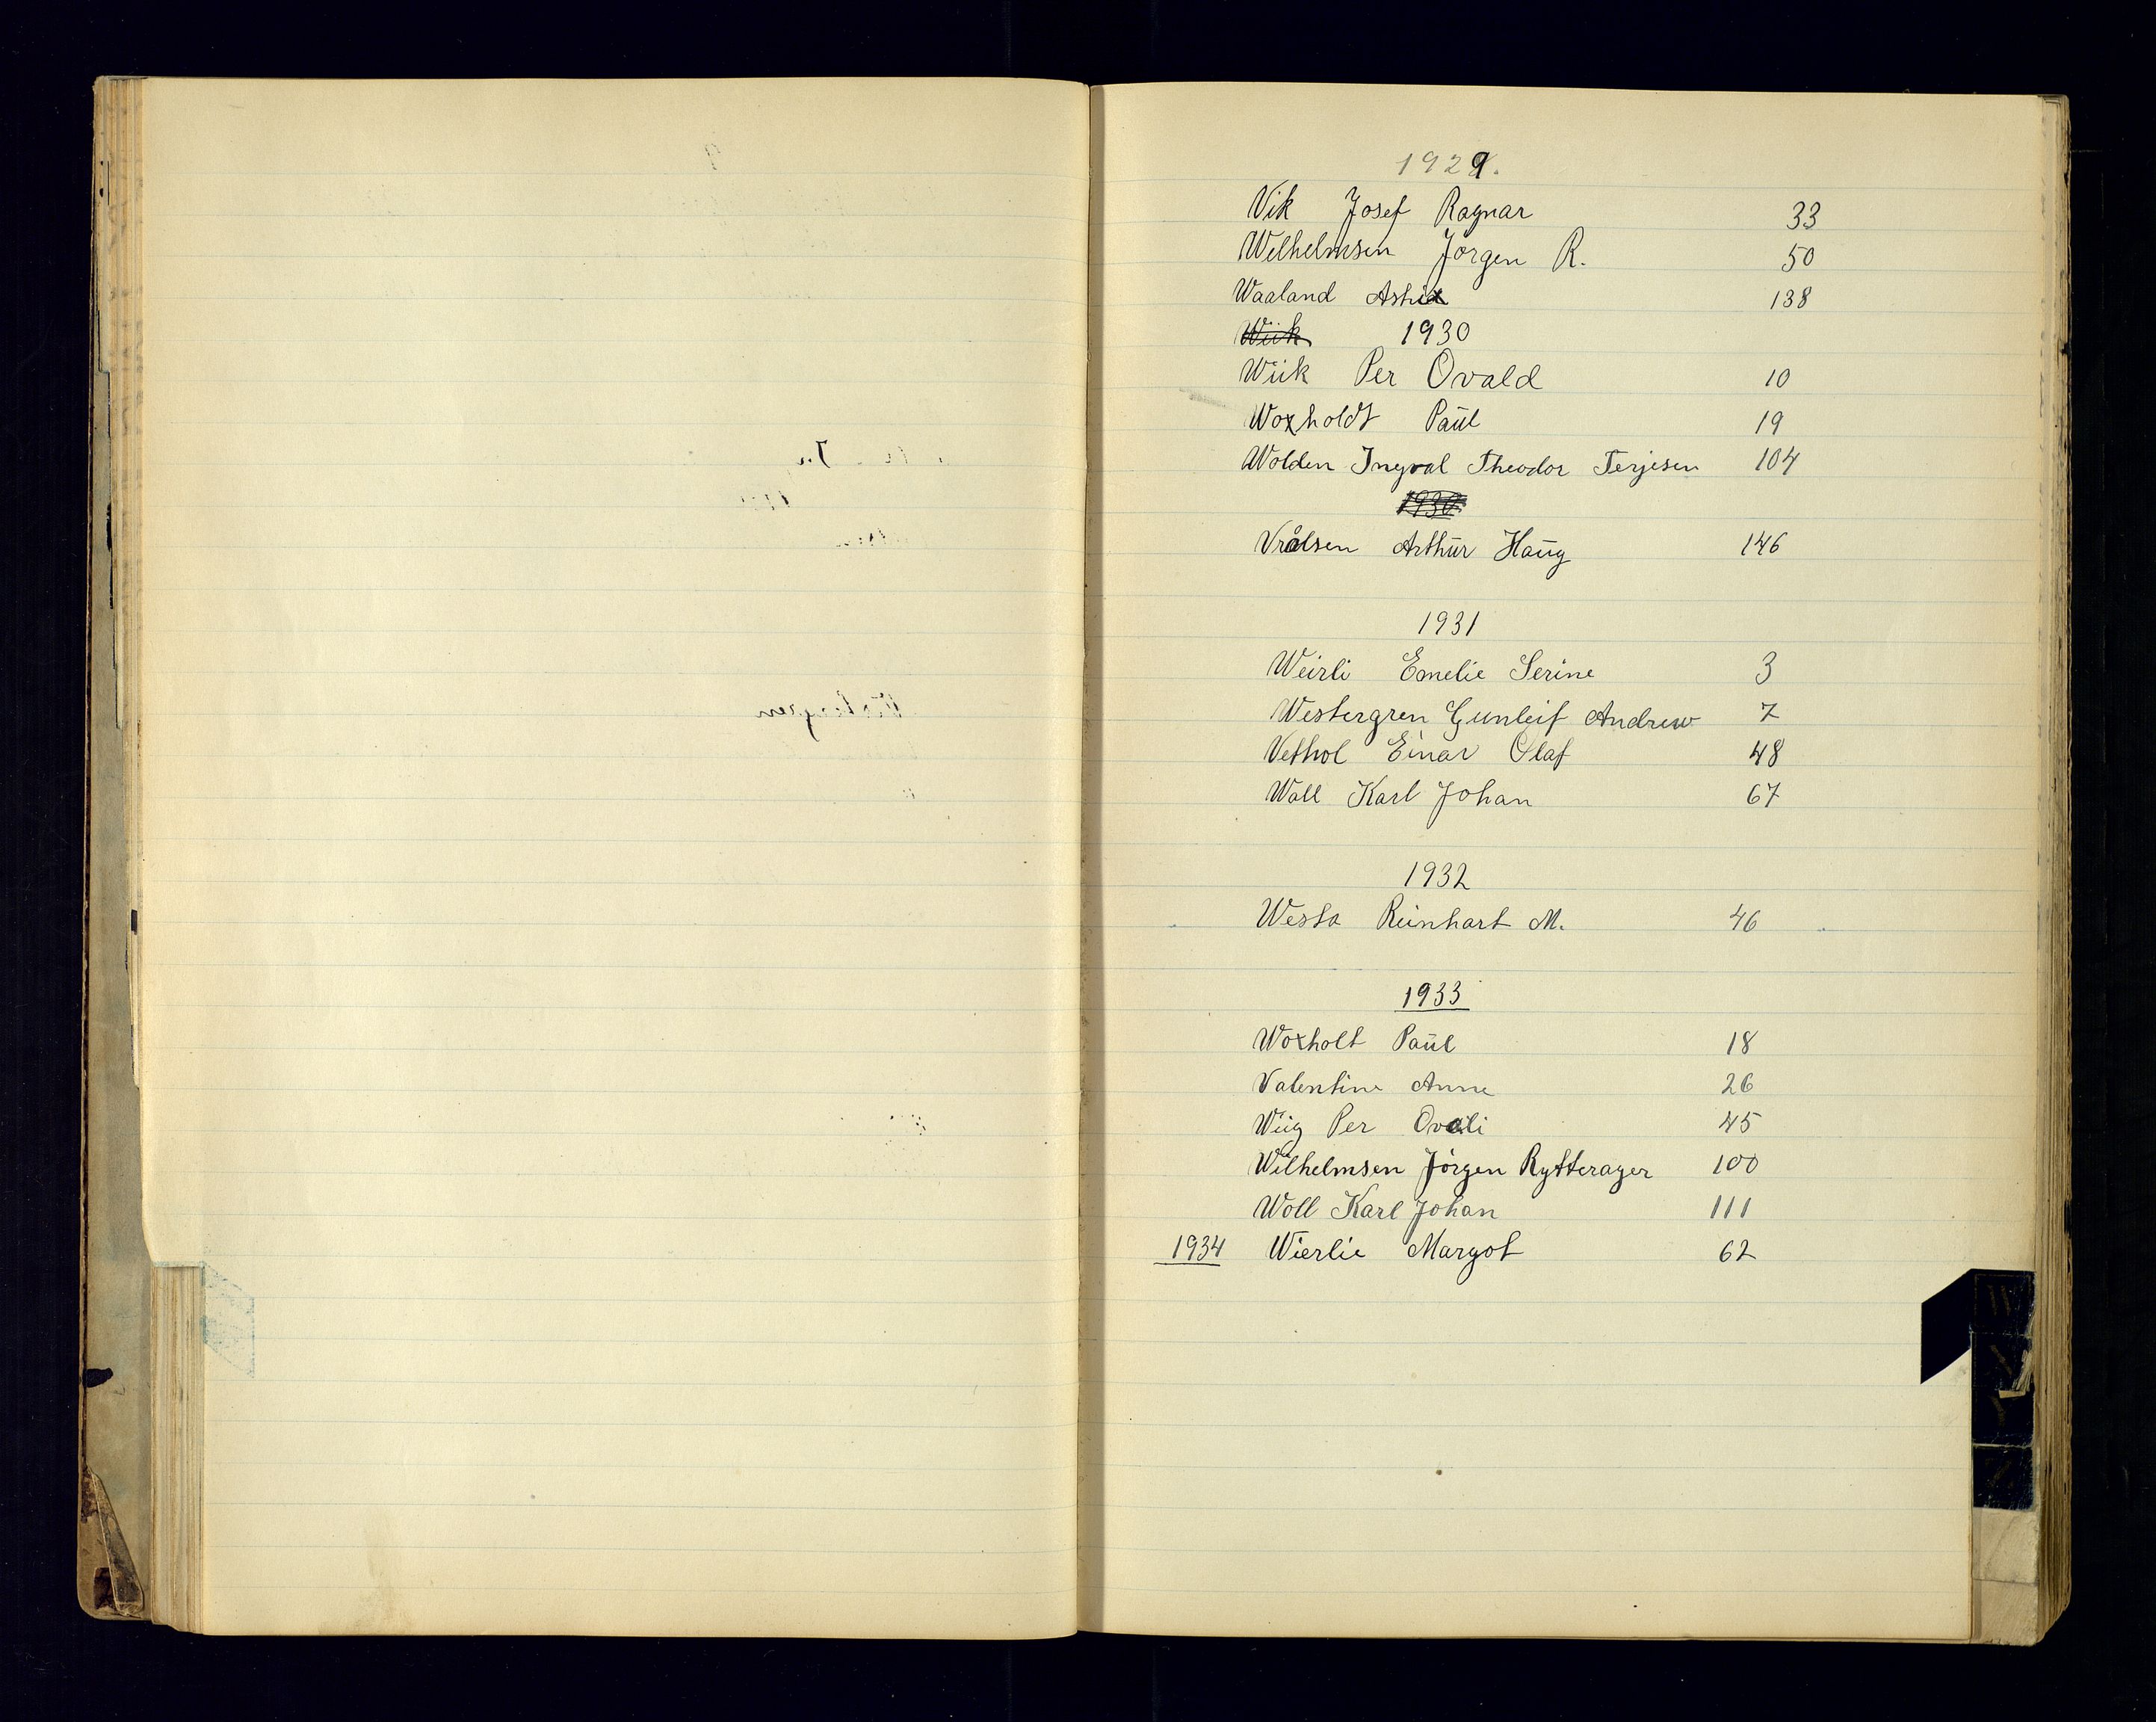 1929.
Vik Josef Ragnar 33
Welhelmsen Jörgen R. 50
Waaland Astrid 138
Wiik 1930
Wiik Per Ovald 10
Woxholdt Paul 19
Wolden Ingval Theodor Terjesen 104
1930
Vrålsen Arthur Haug 146
1931
Weirli Emelie Serine 3
Westergren Gunleif Andrew 7
Vethol Einar Olaf 48
Wåll Karl Johan 67
1932
Westa Reinhart M. 46
1933
Woxholt Paul 18
Valentine Anne 26
Wiig Per Ovali 45
Wilhelmsen Jörgen Rytterager 100
Woll Karl Johan 111
1934 Wierlie Margot 62